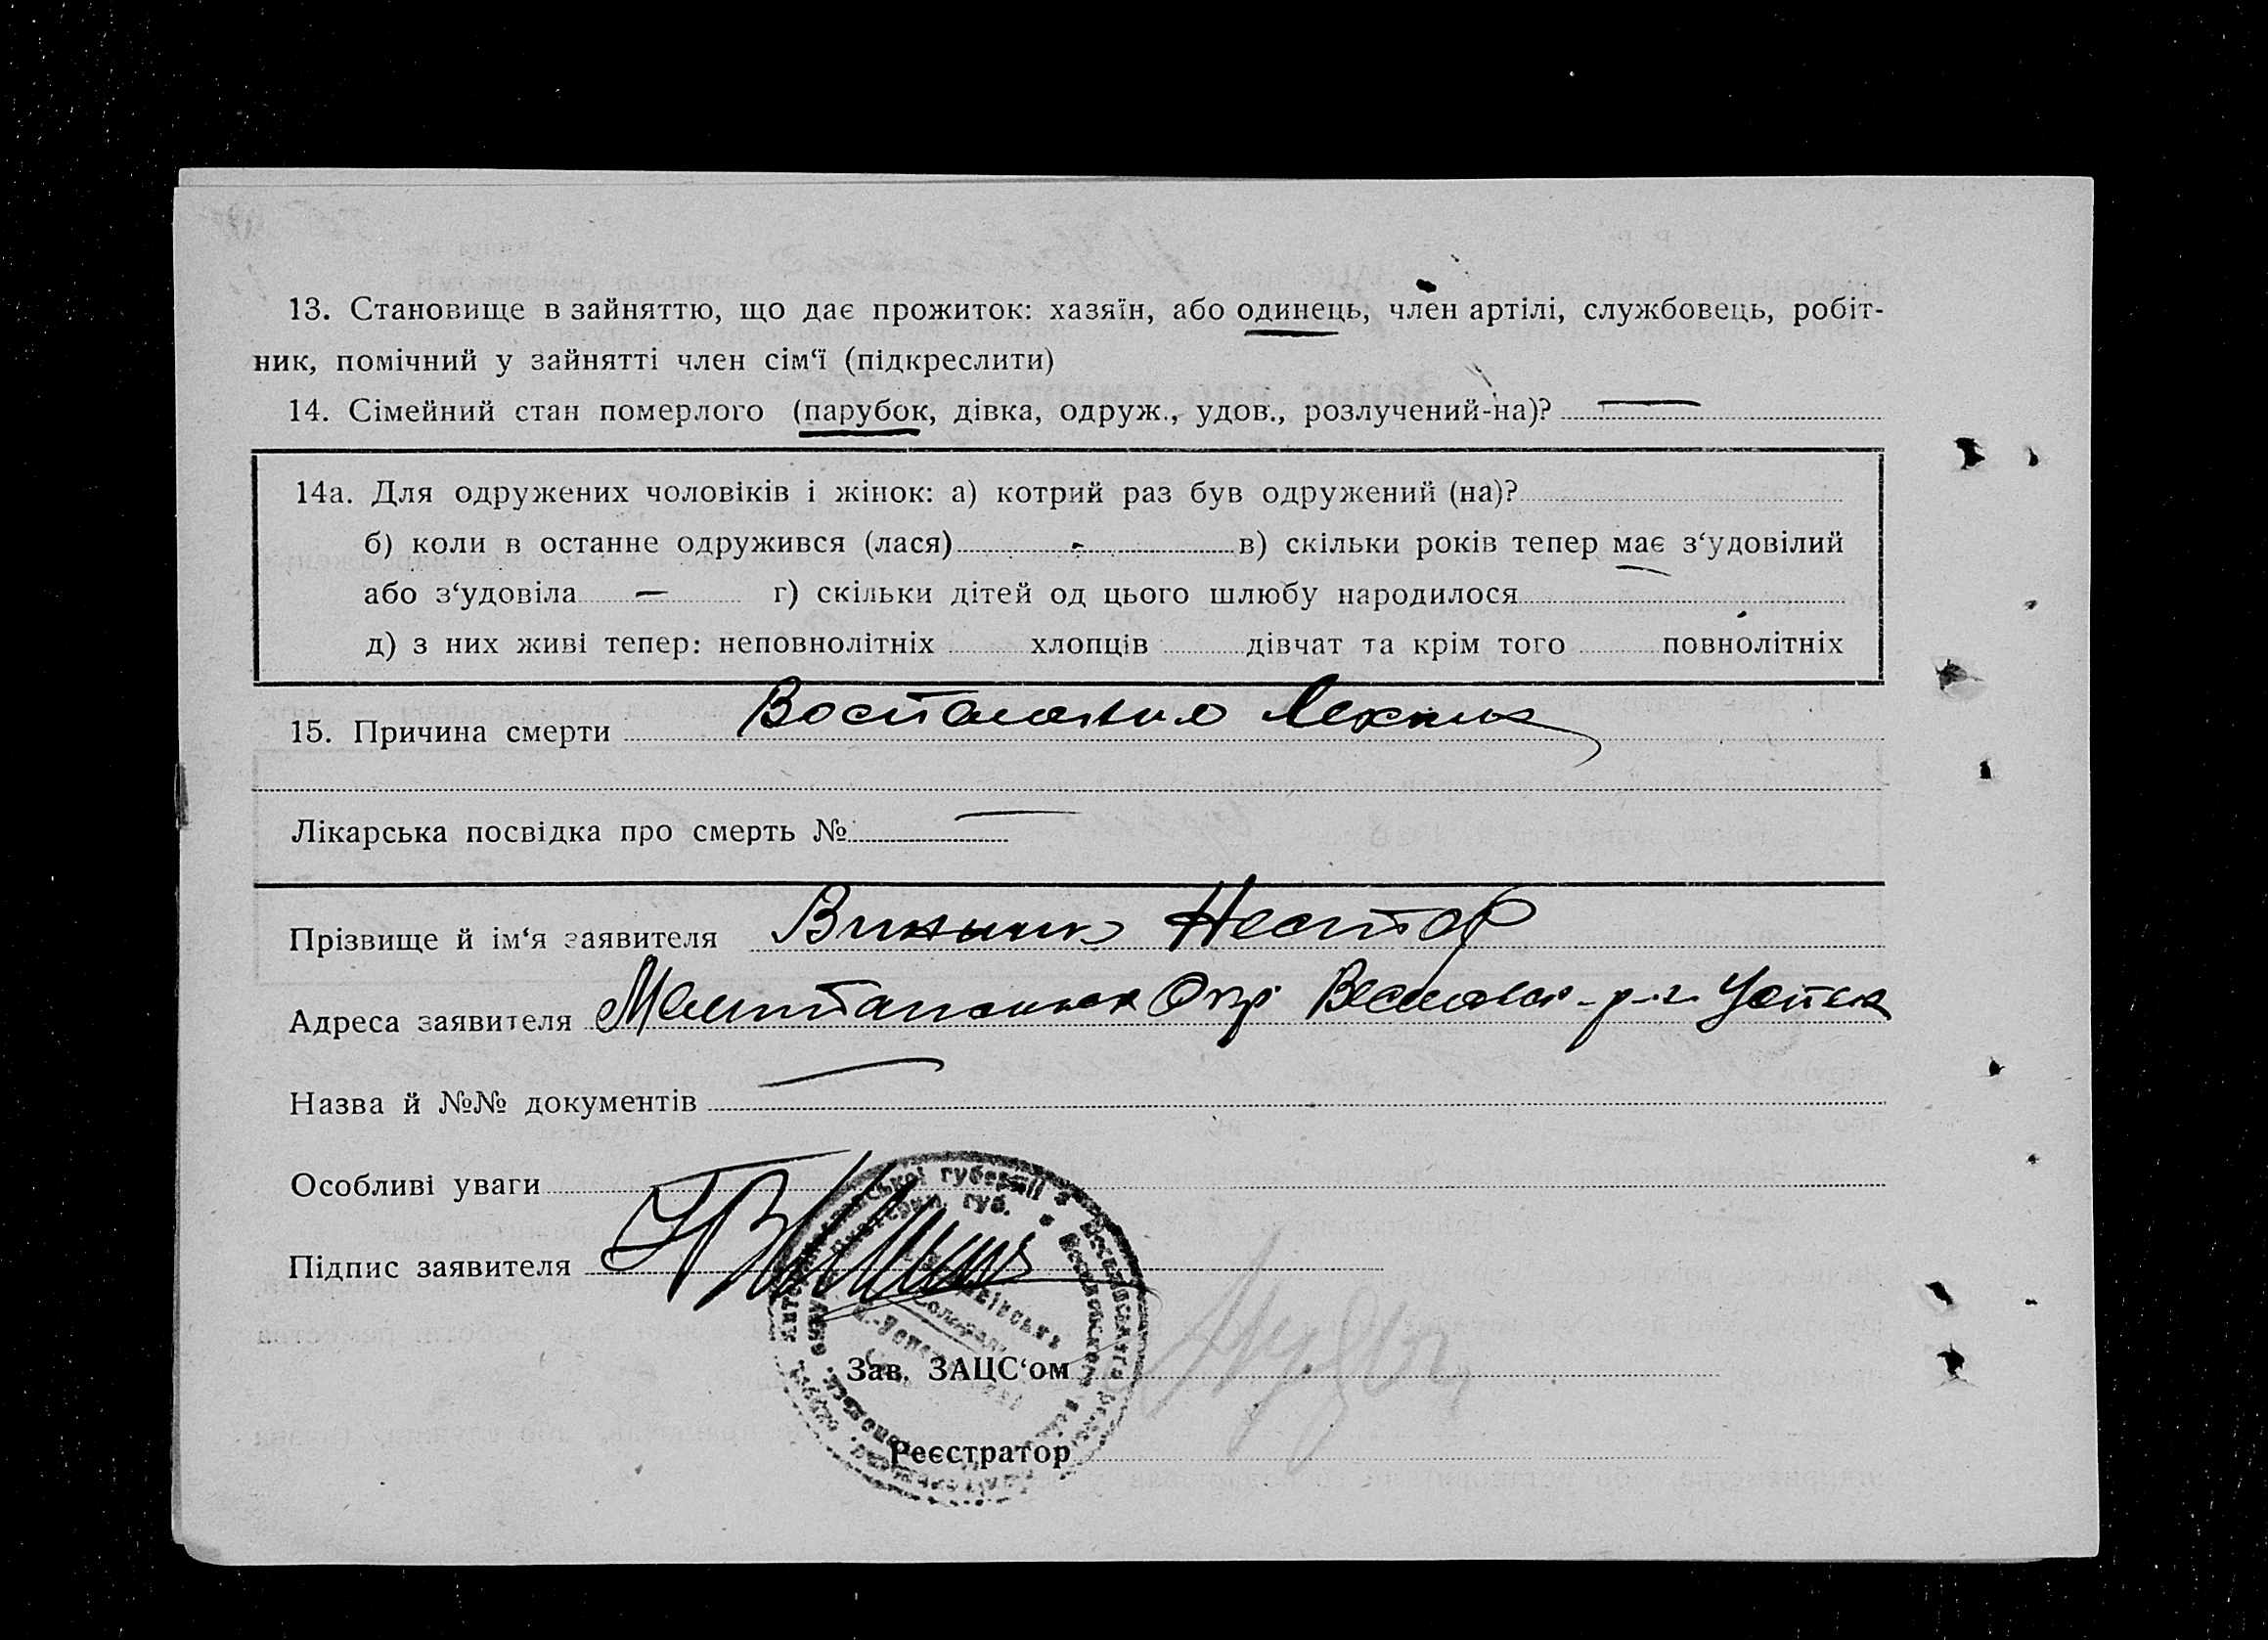 13. Становище в зайняттю, що дає прожиток: хазяїн, або одинець, член артілі, службовець, робіт-
ник, помічний у зайнятті член сім‘ї (підкреслити)
14. Сімейний стан померлого (парубок, дівка, одруж., удов., розлучений-на)? —
14а. Для одружених чоловіків і жінок: а) котрий раз був одружений (на)?
б) коли в останнє одружився (лася) - в) скільки років тепер має з‘удовілий
або з‘удовіла — г) скільки дітей од цього шлюбу народилося
д) з них живі тепер: неповнолітніх хлопців дівчат та крім того повнолітніх
15. Причина смерти
Лікарська посвідка про смерть № —
Прізвище й ім‘я заявителя Нестор
Адреса заявителя Окр
Назва й №№ документів —
Особливі уваги
губернії
губ.
Підпис заявителя
Зав. ЗАЦС‘ом
Реєстратор